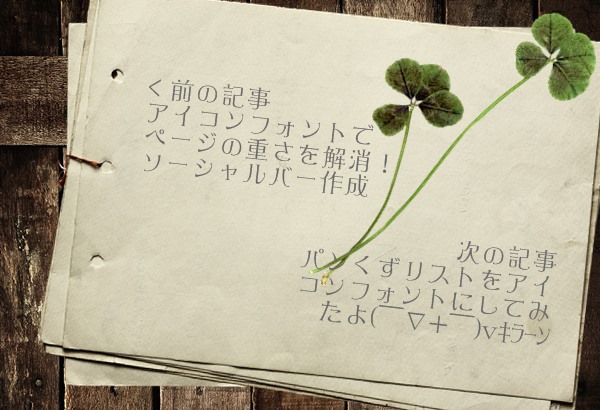 く前の記事
アイコンフォントで
ページの重さを解消！
ソーシャルバー作成
次の記事
パンくずリストをアイ
コンフォントにしてみ
たよ(￣▽+￣)vｷﾗｰﾝ